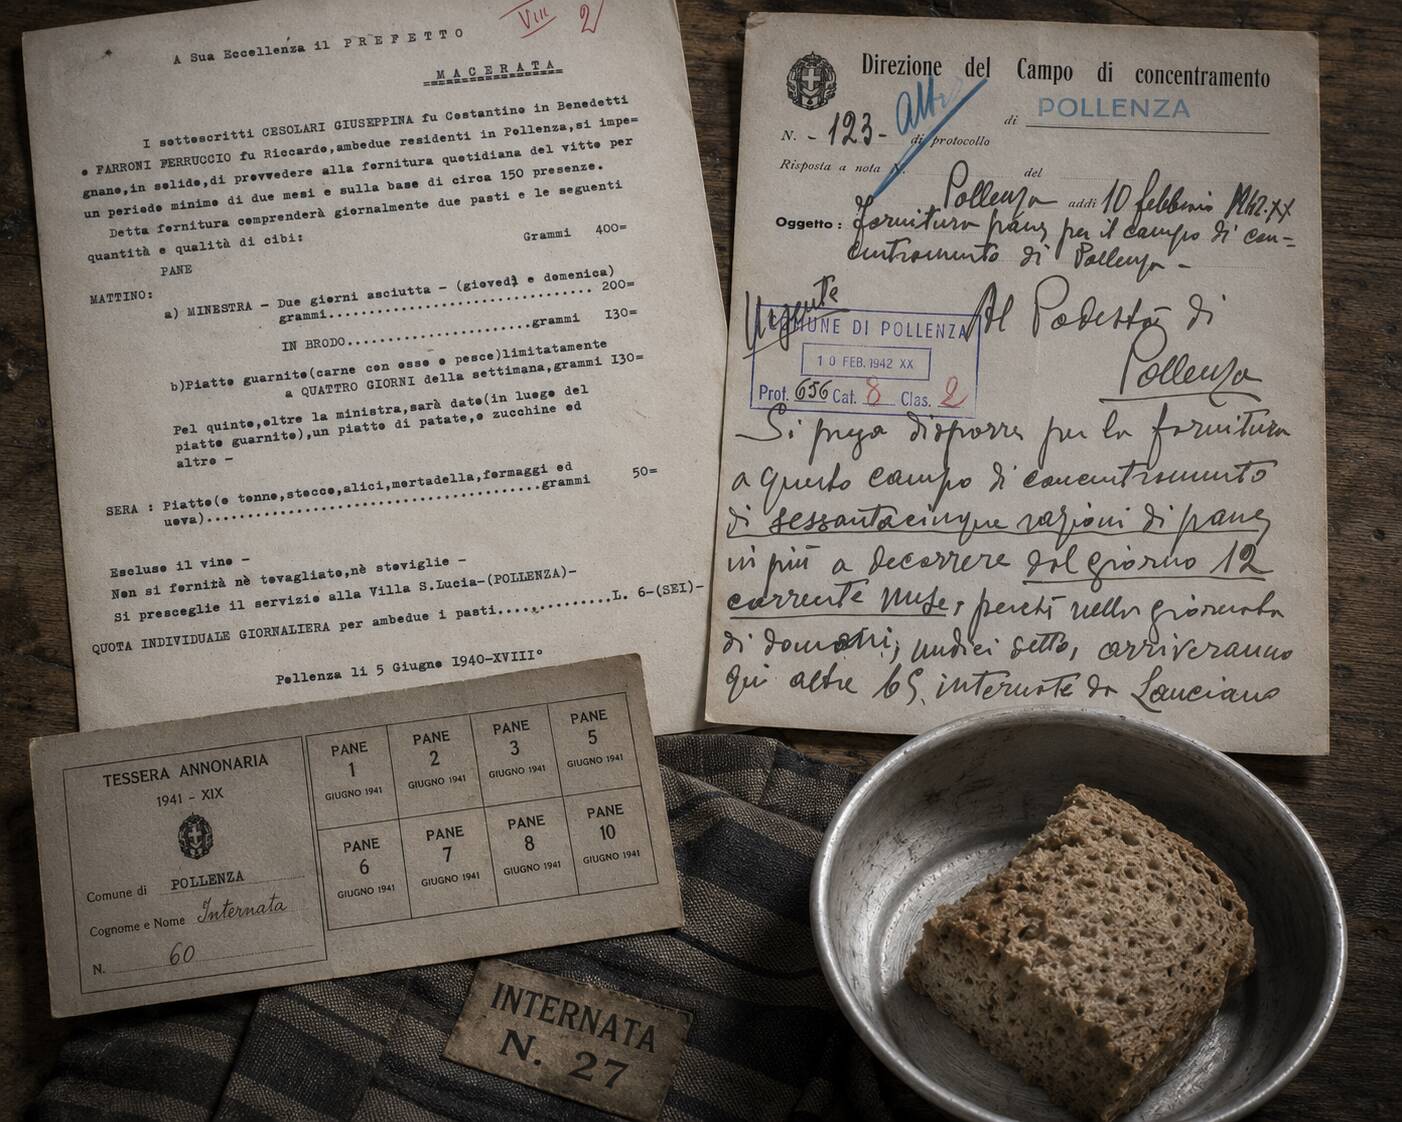 VIII 2
A Sua Eccellenza il PREFETTO
MACERATA
I sottoscritti CESOLARI GIUSEPPINA fu Costantino in Benedetti
e FARRONI FERRUCCIO fu Riccardo,ambedue residenti in Pollenza,si impe=
gnano,in solido,di provvedere alla fornitura quotidiana del vitto per
un periodo minimo di due mesi e sulla base di circa 150 presenze.
Detta fornitura comprenderà giornalmente due pasti e le seguenti
quantità e qualità di cibi:
PANE Grammi 400=
MATTINO:
a) MINESTRA - Due giorni asciutta - (giovedì e domenica)
grammi................................ 200=
IN BRODO......................grammi 130=
b)Piatto guarnito(carne con osso o pesce)limitatamente
a QUATTRO GIORNI della settimana,grammi 130=
Pel quinto,oltre la ministra,sarà dato(in luogo del
piatto guarnito),un piatto di patate,o zucchine ed
altro -
SERA : Piatto(o tonno,stocco,alici,mortadella,formaggi ed
uova)........................................grammi 50=
Escluso il vino -
Non si fornità nè tovagliato,nè stoviglie -
Si presceglie il servizio alla Villa S.Lucia-(POLLENZA)-
QUOTA INDIVIDUALE GIORNALIERA per ambedue i pasti..............L. 6-(SEI)-
Pollenza li 5 Giugno 1940-XVIII°
Direzione del Campo di concentramento
di POLLENZA
N. - 123 - di protocollo
Risposta a nota N. del
Pollenza addi 10 febbraio 1942.XX
Oggetto : fornitura pane per il campo di con=
centramento di Pollenza -
Urgente
Al Podestà di
Pollenza
COMUNE DI POLLENZA
10 FEB. 1942 XX
Prot. 656 Cat. 8 Clas. 2
Si prega disporre per la fornitura
a questo campo di concentramento
di sessantacinque razioni di pane
in più a decorrere dal giorno 12
corrente mese, perchè nella giornata
di domani, undici detto, arriveranno
qui altre 65 internate da Lanciano
TESSERA ANNONARIA
1941 - XIX
Comune di POLLENZA
Cognome e Nome Internata
N. 60
PANE 1 GIUGNO 1941
PANE 2 GIUGNO 1941
PANE 3 GIUGNO 1941
PANE 5 GIUGNO 1941
PANE 6 GIUGNO 1941
PANE 7 GIUGNO 1941
PANE 8 GIUGNO 1941
PANE 10 GIUGNO 1941
INTERNATA
N. 27